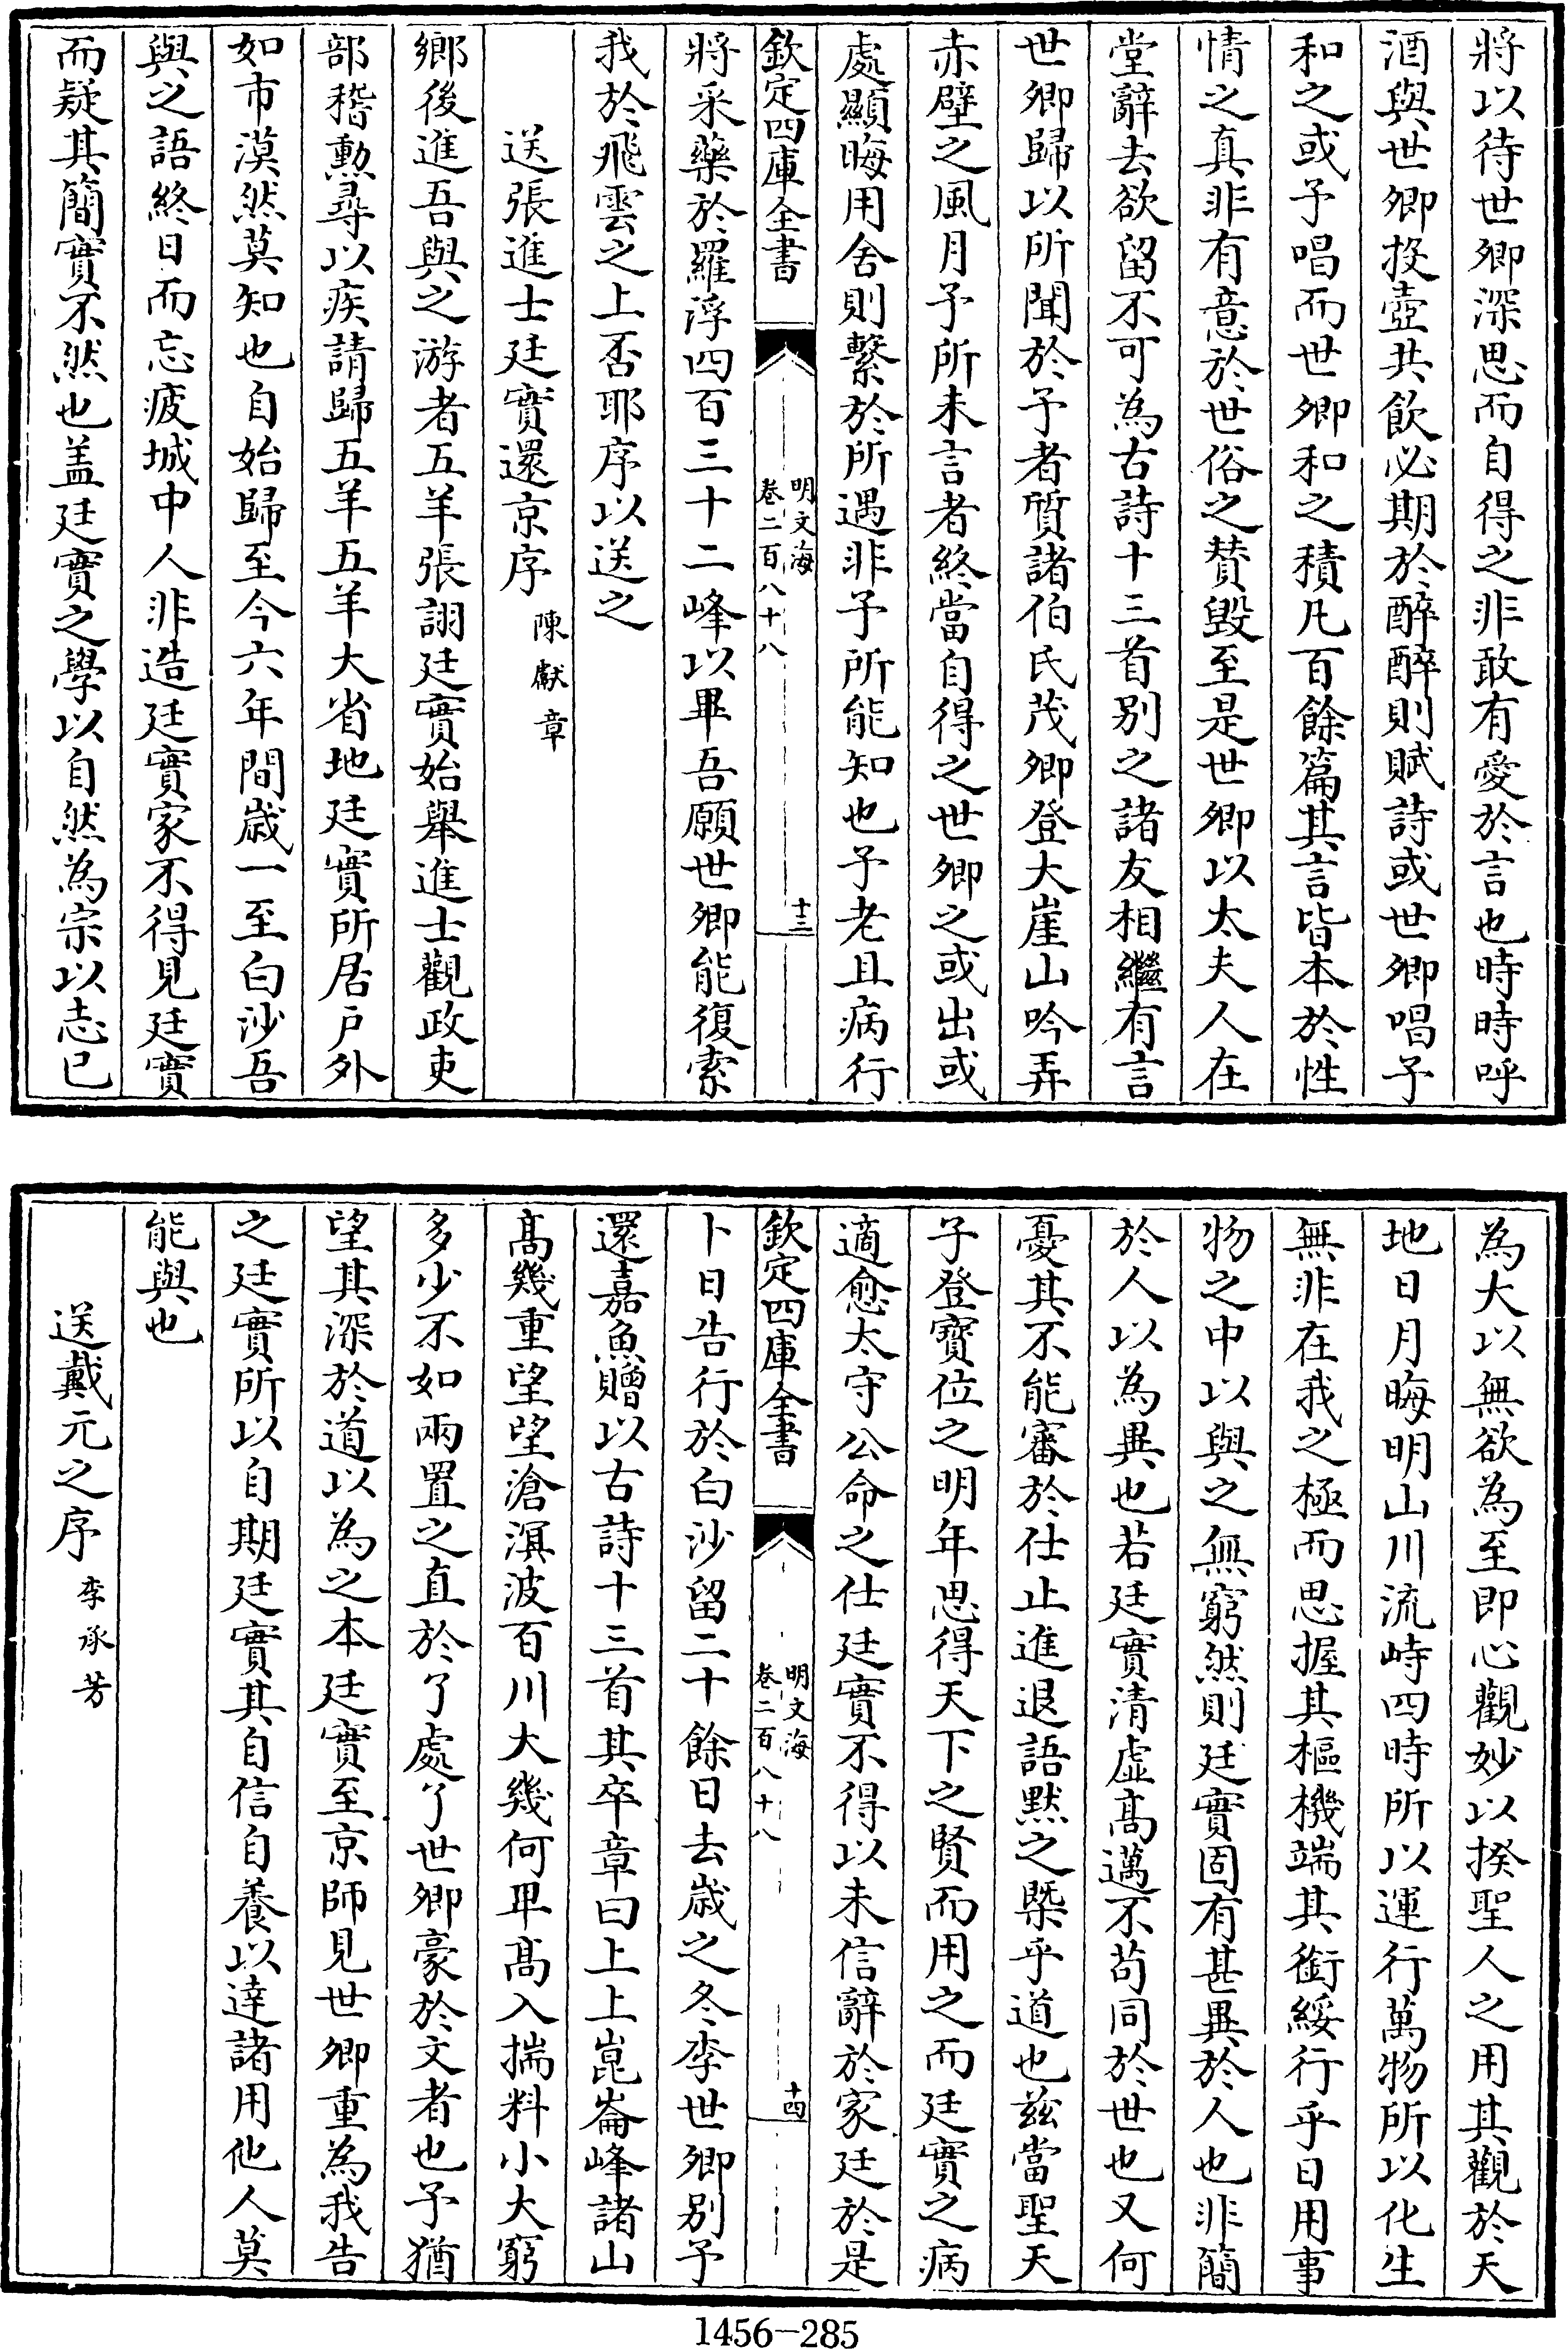 將以待世卿深思而自得之非敢有愛於言也時時呼
酒與世卿投壺共飲必期於醉醉則賦詩或世卿唱予
和之或予唱而世卿和之積凡百餘篇其言皆本於性
情之真非有意於世俗之賛毀至是世卿以太夫人在
堂辭去欲留不可為古詩十三首别之諸友相繼有言
世卿歸以所聞於予者質諸伯氏茂卿登大崖山吟弄
赤壁之風月予所未言者終當自得之世卿之或出或
處顯晦用舍則繫於所遇非予所能知也予老且病行
欽定四庫全書
明文海
卷二百八十八
十三
將采藥於羅浮四百三十二峰以畢吾願世卿能復索
我於飛雲之上否耶序以送之
送張進士廷實還京序
陳獻章
鄉後進吾與之游者五羊張詡廷實始舉進士觀政吏
部稽勲尋以疾請歸五羊五羊大省地廷實所居戶外
如市漠然莫知也自始歸至今六年間歲一至白沙吾
與之語終日而忘疲城中人非造廷實家不得見廷實
而疑其簡實不然也盖廷實之學以自然為宗以忘已
為大以無欲為至即心觀妙以揆聖人之用其觀於天
地日月晦明山川流峙四時所以運行萬物所以化生
無非在我之極而思握其樞機端其銜綏行乎日用事
物之中以與之無窮然則廷實固有甚異於人也非簡
於人以為異也若廷實清虛髙邁不苟同於世也又何
憂其不能審於仕止進退語黙之槩乎道也兹當聖天
子登寶位之明年思得天下之賢而用之而廷實之病
適愈太守公命之仕廷實不得以未信辭於家廷於是
欽定四庫全書
明文海
卷二百八十八
十四
卜日告行於白沙留二十餘日去歲之冬李世卿别予
還嘉魚贈以古詩十三首其卒章曰上上崑崙峰諸山
髙幾重望望滄溟波百川大幾何卑髙入揣料小大窮
多少不如兩置之直於了處了世卿豪於文者也予猶
望其深於道以為之本廷實至京師見世卿重為我告
之廷實所以自期廷實其自信自養以達諸用他人莫
能與也
送戴元之序
李承芳
1456-285